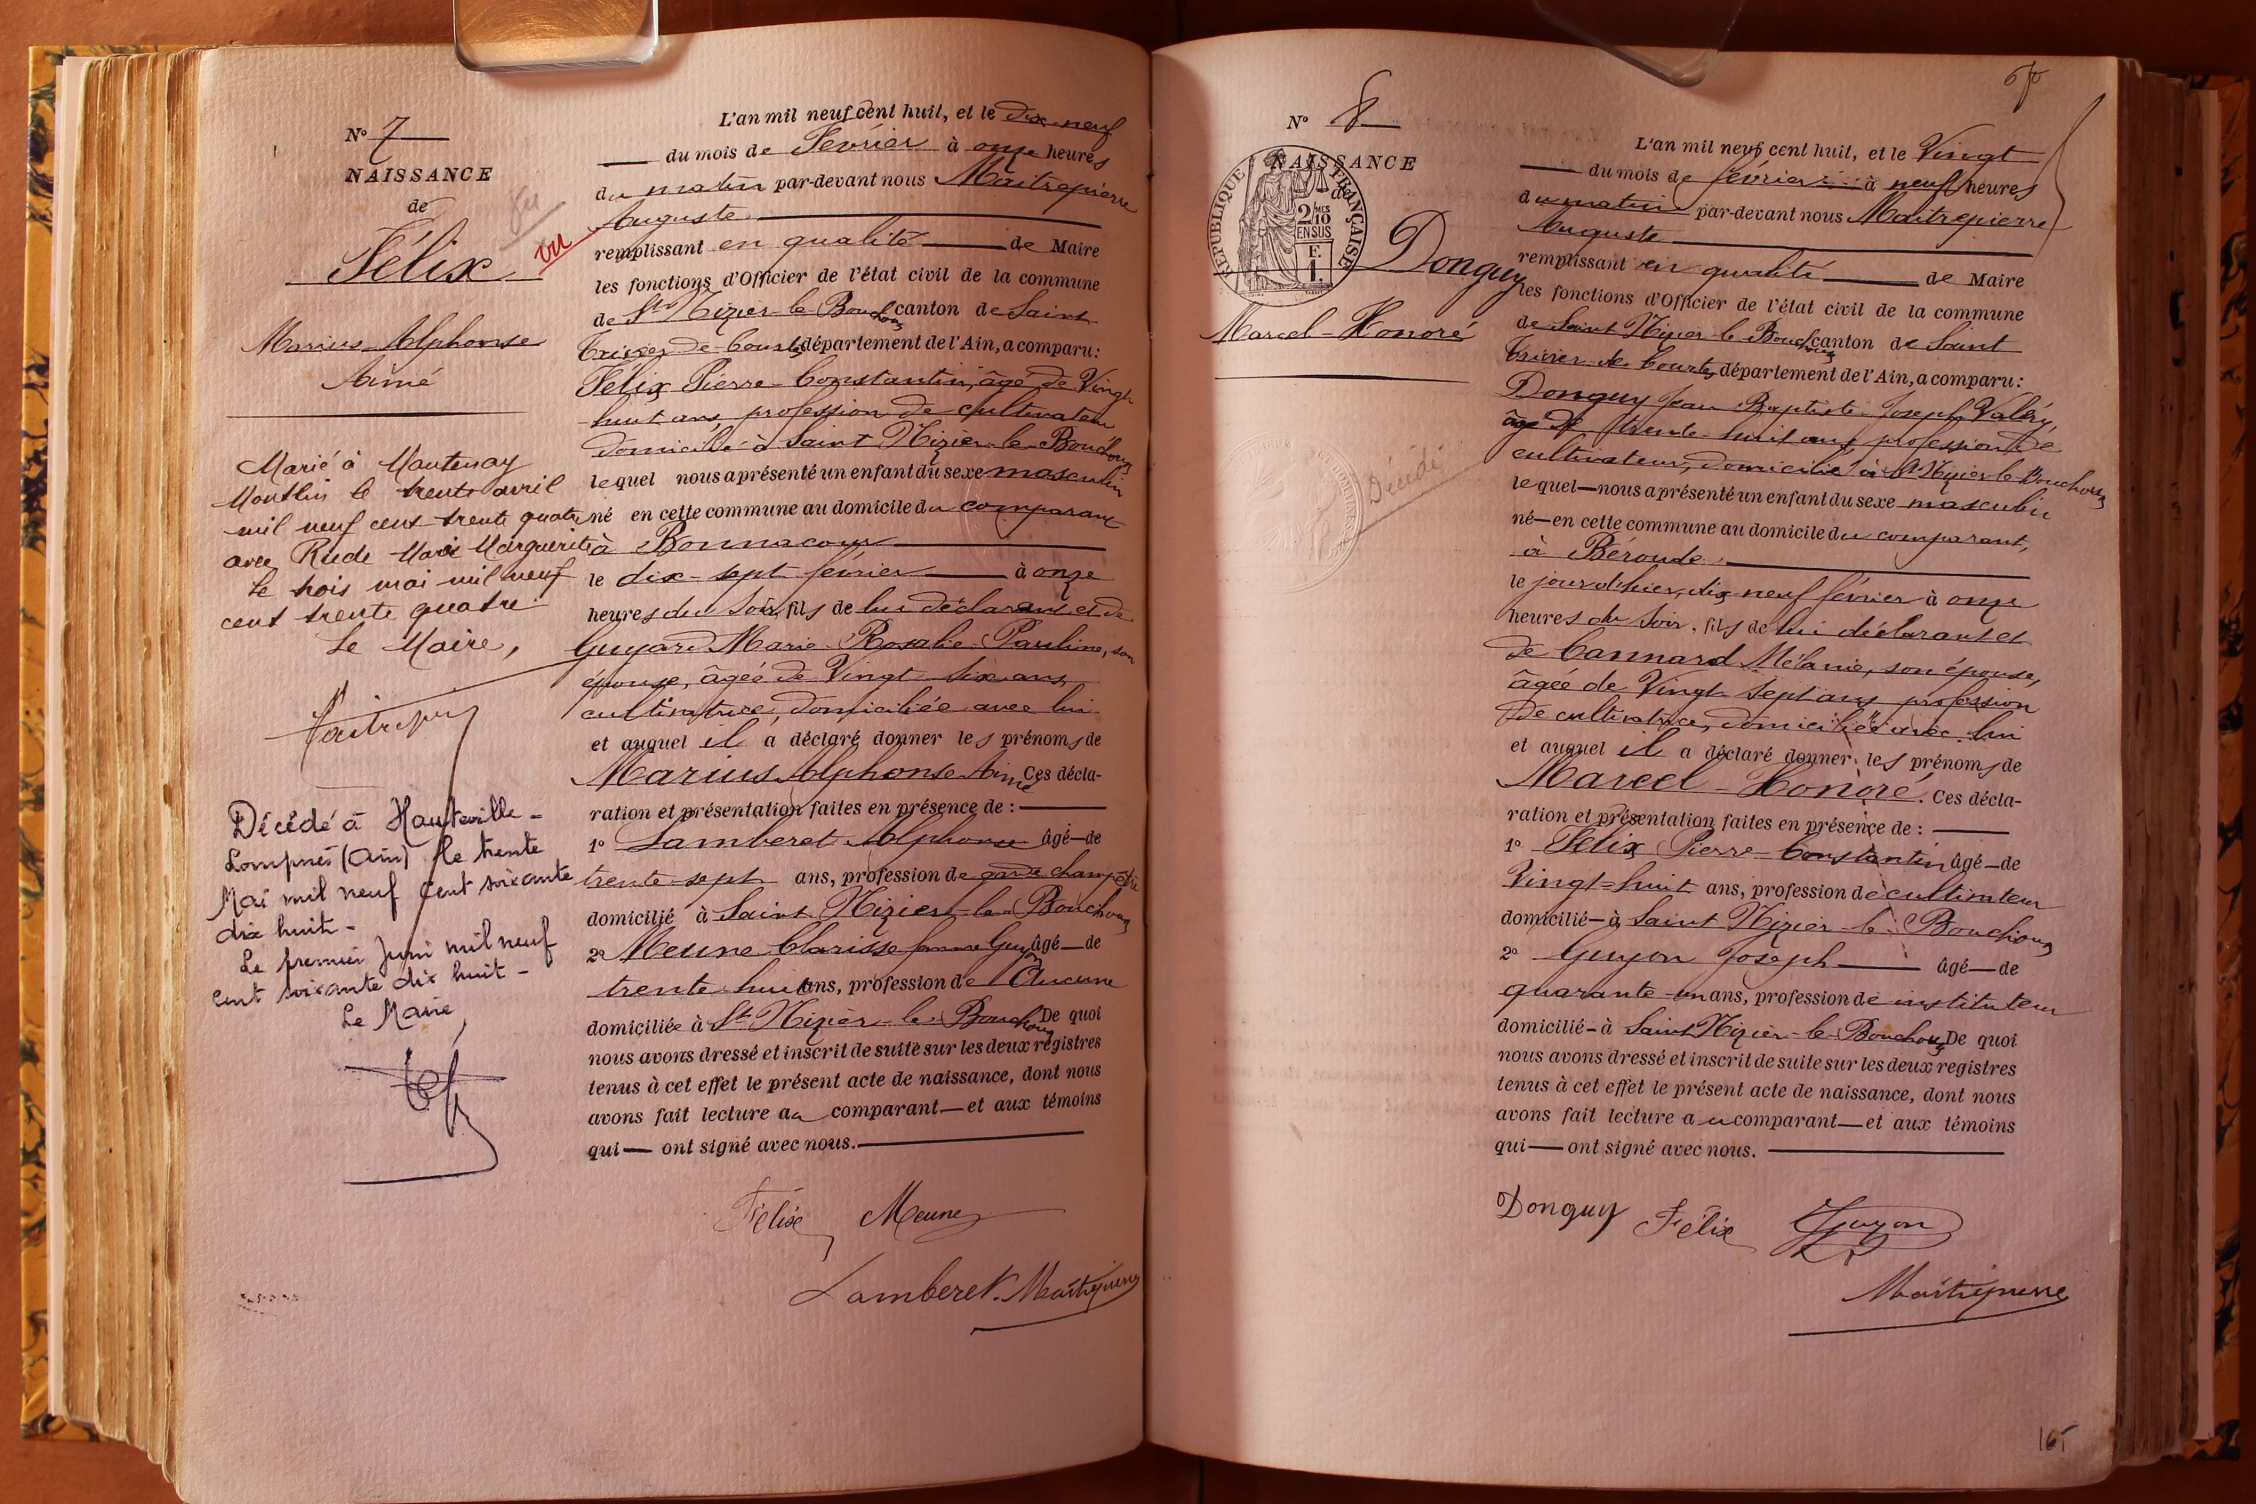 N° 7
NAISSANCE
de
Félix
Marius Alphonse
Aimé
vu
Marié à Mantenay
Montlin le trente avril
mil neuf cent trente quatre
avec Rude Marie Marguerite
Le trois mai mil neuf
cent trente quatre
Le Maire,
Décédé à Hauteville-
Lompnes (Ain) le trente
Mai mil neuf cent soixante
dix huit -
Le premier Juin mil neuf
cent soixante dix huit -
Le Maire,
L'an mil neuf cent huit, et le dix-neuf
du mois de Février à onze heures
du matin par-devant nous Maitrepierre
Auguste
remplissant en qualité de Maire
les fonctions d'Officier de l'état civil de la commune
de St Nizier-le-Bouchoux canton de Saint
Trivier-de-Courtes département de l'Ain, a comparu:
Félix Pierre-Constantin, âgé de Vingt
huit ans, profession de cultivateur
domicilié à Saint Nizier-le-Bouchoux
lequel nous a présenté un enfant du sexe masculin
né en cette commune au domicile du comparant
à Bonnacour
le dix-sept février à onze
heures du soir, fils de lui déclarant et de
Guyard Marie Rosalie Pauline, son
épouse, âgée de Vingt-six ans,
cultivatrice, domiciliée avec lui
et auquel il a déclaré donner les prénoms de
Marius Alphonse Aimé Ces décla-
ration et présentation faites en présence de :
1° Lamberet Alphonse âgé de
trente-sept ans, profession de garde champêtre
domicilié à Saint Nizier-le-Bouchoux
2° Meune Clarisse femme Guy âgé de
trente-huit ans, profession de Aucune
domiciliée à St Nizier-le-Bouchoux De quoi
nous avons dressé et inscrit de suite sur les deux registres
tenus à cet effet le présent acte de naissance, dont nous
avons fait lecture au comparant et aux témoins
qui ont signé avec nous.
Félix Meune
Lamberet Maitrepierre
N° 8
NAISSANCE
de
RÉPUBLIQUE FRANÇAISE
2/10 MES
EN SUS
F.
1.
Donguy
Marcel-Honoré
Décédé
L'an mil neuf cent huit, et le Vingt
du mois de février à neuf heures
du matin par-devant nous Maitrepierre
Auguste
remplissant en qualité de Maire
les fonctions d'Officier de l'état civil de la commune
de Saint Nizier-le-Bouchoux canton de Saint
Trivier de Courtes département de l'Ain, a comparu:
Donguy Jean Baptiste Joseph Valéry,
âgé de trente-huit ans, profession de
cultivateur, domicilié à St Nizier-le-Bouchoux
lequel nous a présenté un enfant du sexe masculin
né en cette commune au domicile du comparant,
à Béroude
le jour d'hier, dix neuf février à onze
heures du soir, fils de lui déclarant et
de Cannard Mélanie, son épouse,
âgée de Vingt-sept ans, profession
de cultivatrice, domiciliée avec lui
et auquel il a déclaré donner les prénoms de
Marcel-Honoré. Ces décla-
ration et présentation faites en présence de :
1° Félix Pierre-Constantin âgé de
Vingt-huit ans, profession de cultivateur
domicilié à Saint Nizier-le-Bouchoux
2° Guyon Joseph âgé de
quarante-un ans, profession de instituteur
domicilié à Saint Nizier-le-Bouchoux De quoi
nous avons dressé et inscrit de suite sur les deux registres
tenus à cet effet le présent acte de naissance, dont nous
avons fait lecture au comparant et aux témoins
qui ont signé avec nous.
Donguy Félix Guyon
Maitrepierre
165